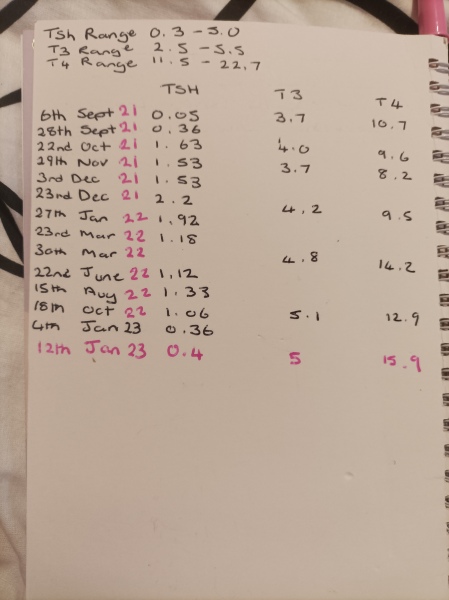 TSh Range 0.3 - 5.0
T3 Range 2.5 - 5.5
T4 Range 11.5 - 22.7
TSH T3 T4
6th Sept 21 0.05 3.7 10.7
28th Sept 21 0.36
22nd Oct 21 1.63 4.0 9.6
29th Nov 21 1.53 3.7 8.2
3rd Dec 21 1.53
23rd Dec 21 2.2
27th Jan 22 1.92 4.2 9.5
23rd Mar 22 1.18
30th Mar 22 4.8 14.2
22nd June 22 1.12
15th Aug 22 1.33
18th Oct 22 1.06 5.1 12.9
4th Jan 23 0.36
12th Jan 23 0.4 5 15.9